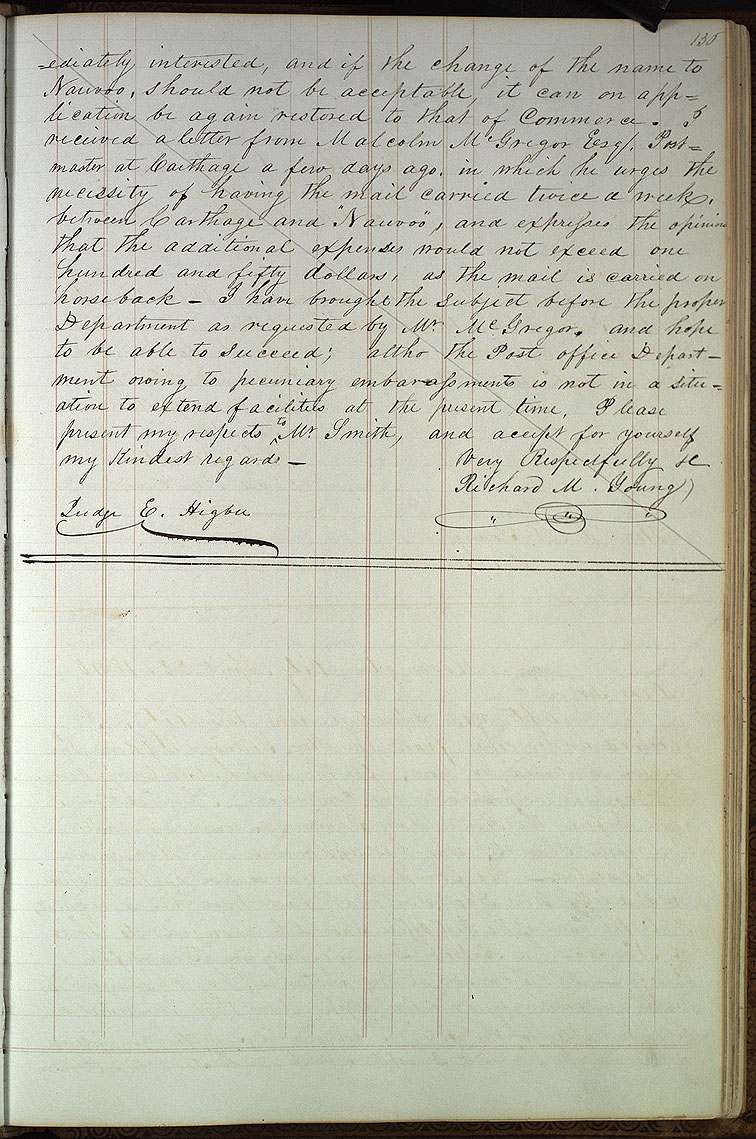 135
=ediately interested, and if the change of the name to
Nauvoo, should not be acceptable, it can on app=
lication be again restored to that of Commerce. I
received a letter from Malcolm McGregor Esqr. Post=
master at Carthage a few days ago, in which he urges the
necessity of having the mail carried twice a week,
between Carthage and "Nauvoo", and expresses the opinion
that the additional expenses would not exceed one
hundred and fifty dollars, as the mail is carried on
horseback — I have brought the subject before the proper
Department as requested by Mr McGregor, and hope
to be able to succeed; altho the Post office Depart=
ment owing to pecuniary embarassments is not in a situ=
ation to extend facilities at the present time. Please
present my respects to Mr Smith, and accept for yourself
my kindest regards —
Very Respectfully &c
Richard M. Young
Judge E. Higbee